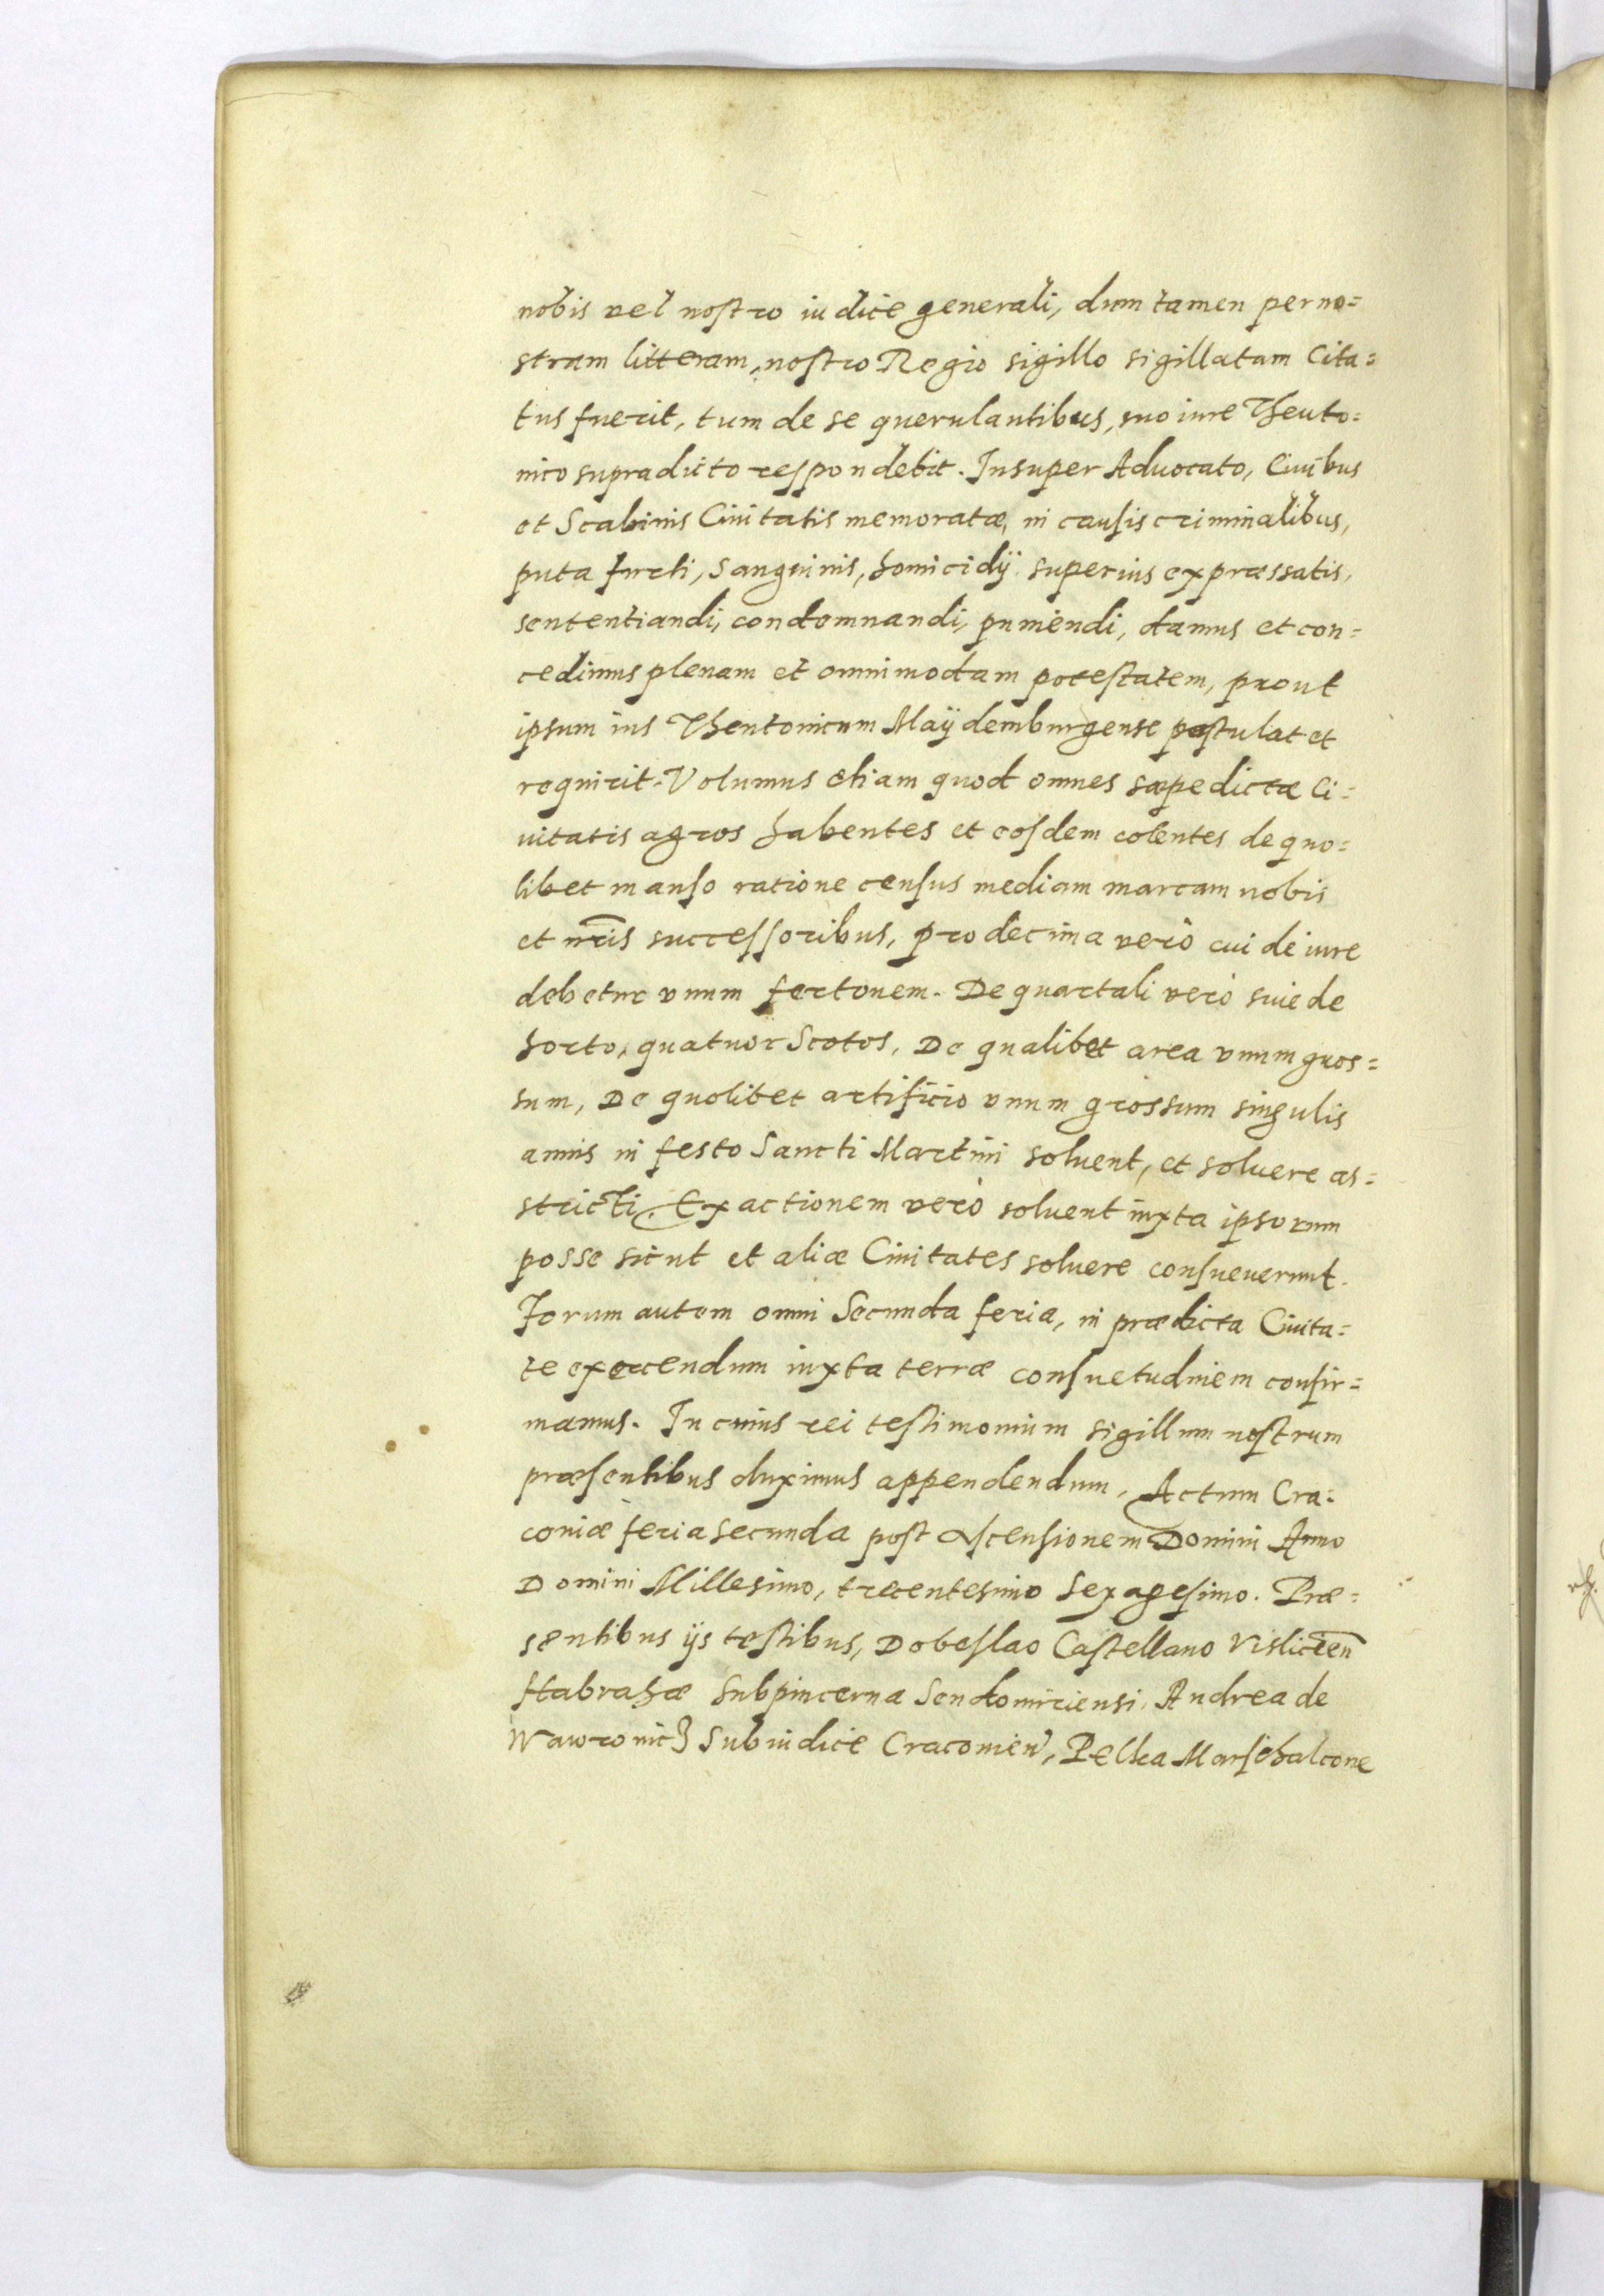 nobis vel nostro iudice generali, dum tamen per no=
stram litteram, nostro Regio sigillo sigillatam Cita=
tus fuerit, tum de se querulantibus, suo iure Theuto=
nico supradicto respondebit. Insuper Advocato, Civibus
et Scabinis Civitatis memoratæ, in causis criminalibus,
puta furti, sanguinis, homicidÿ superius expræssatis,
sententiandi, condemnandi, puniendi, damus et con=
cedimus plenam et omnimodam potestatem, prout
ipsum ius Theutonicum Maÿdemburgense postulat et
requirit. Volumus etiam quod omnes sæpedictæ Ci=
uitatis agros habentes et eosdem colentes de quo=
libet manso ratione census mediam marcam nobis
et nr̃is successoribus, pro decima verò cui de iure
debetur vnum fertonem. De quartali verò siue de
horto, quatuor Scotos, De qualibet area vnum gros=
sum, De quolibet artificio vnum grossum singulis
annis in festo Sancti Martini soluent, et soluere as=
stricti. Exactionem verò soluent iuxta ipsorum
posse sicut et aliæ Ciuitates soluere consueuerunt.
Forum autem omni Secunda feria, in prædicta Ciuita=
te exercendum iuxta terræ consuetudinem confir=
mamus. In cuius rei testimonium sigillum nostrum
præsentibus duximus appendendum, Actum Cra=
coniæ feria secunda post Ascensionem Domini Anno
Domini Millesimo, trecentesimo Sexagesimo. Præ=
sentibus ijs testibus, Dobeslao Castellano Vislicien̄
Habrahæ Subpincerna Sendomiriensi, Andrea de
Wawronicz Subiudice Cracouien̄, Pelka Marschalcone